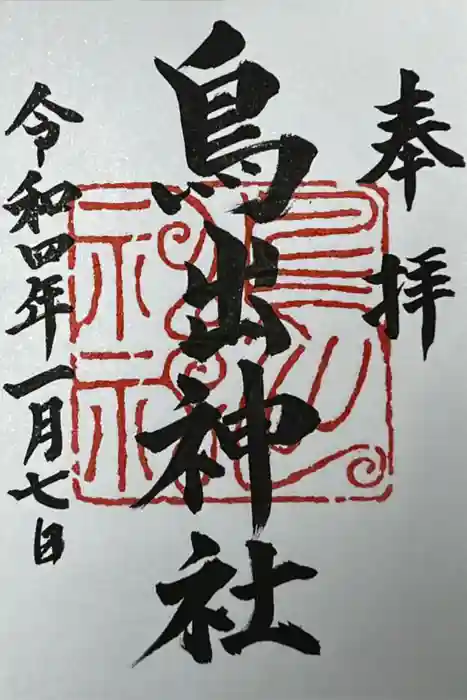 奉拝
鳥出神社
令和四年一月七日